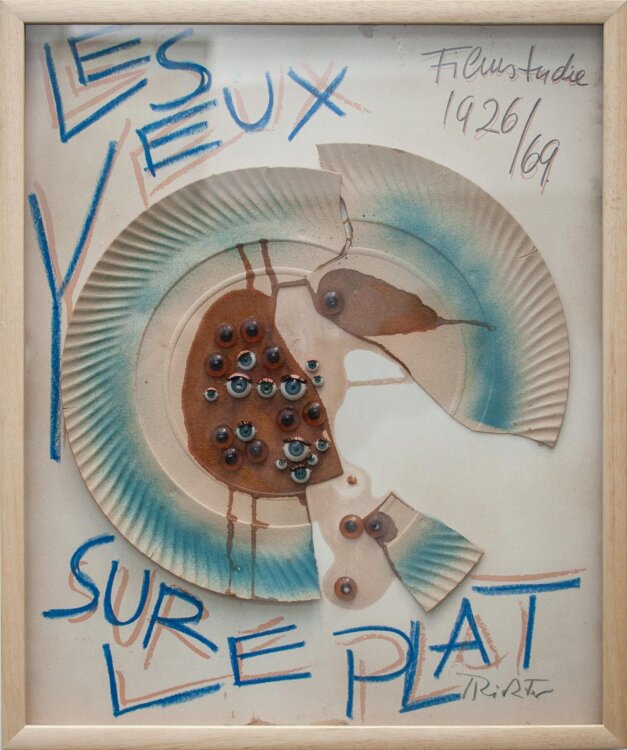 LES
YEUX
Filmstudie
1926/69
SUR
LE PLAT